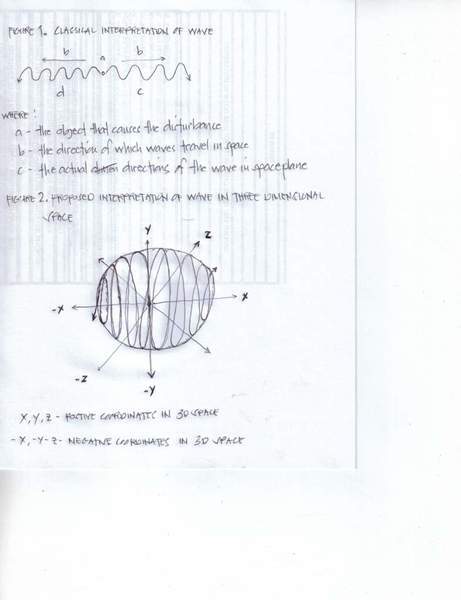 FIGURE 1. CLASSICAL INTERPRETATION OF WAVE
b a b
d c
WHERE:
a - the object that causes the disturbance
b - the direction of which waves travel in space
c - the actual directions of the wave in space plane
FIGURE 2. PROPOSED INTERPRETATION OF WAVE IN THREE DIMENSIONAL
SPACE
Y
Z
-X X
-Z
-Y
X, Y, Z - POSTIVE COORDINATES IN 3D SPACE
-X, -Y -Z - NEGATIVE COORDINATES IN 3D SPACE